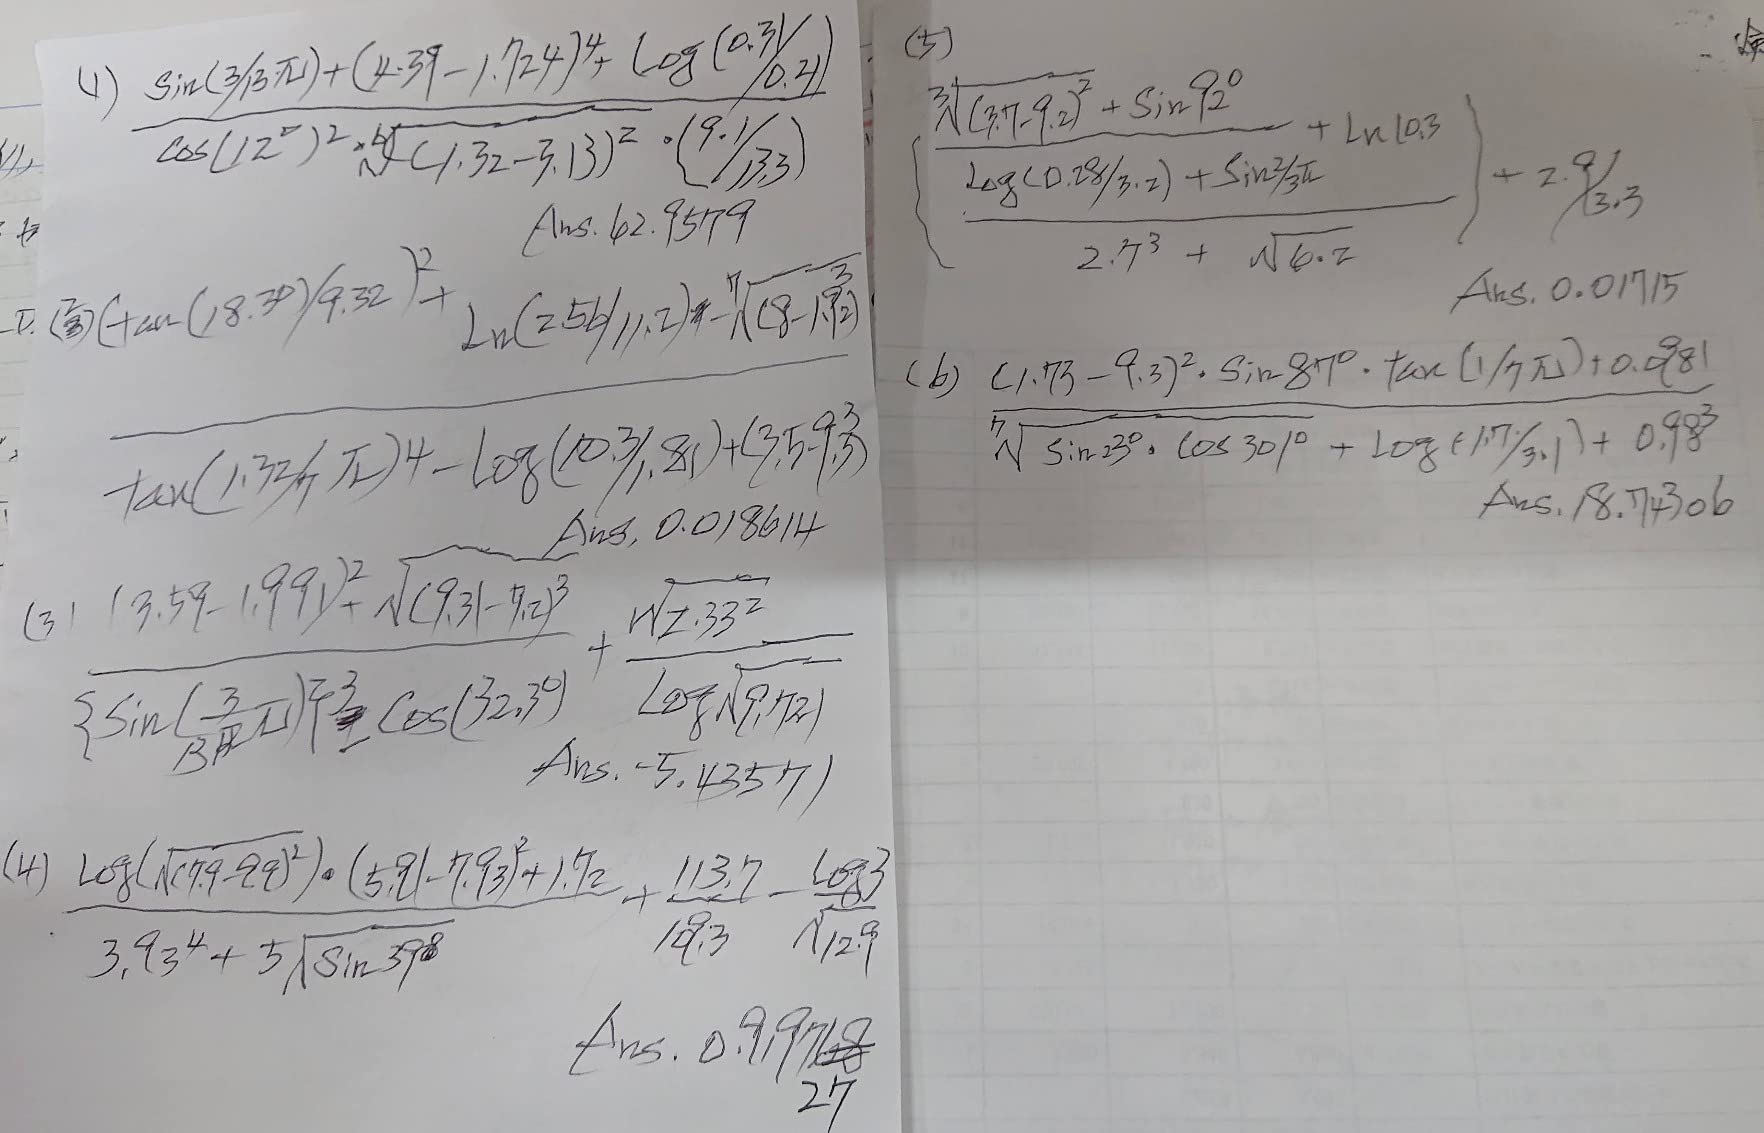 (1) sin(3/13π)+(4.39-1.724)⁴+Log(0.31/0.21)
cos(12°)²·⁴√(1.32-3.13)²·(9.1/13.3)
Ans. 62.9579
(tan(18.3°)/9.32)²+Ln(2.56/11.2)-⁷√(8-1.92)³
tan(1.32/7π)4-Log(10.3/1.81)+(3.5-9.3)³
Ans. 0.018614
(3) (3.59-1.991)²+√(9.31-7.2)³ + √2.33²
{sin(3/13π)}³-cos(32.3°) Log√(9.72)
Ans. -5.43571
(4) Log(√(7.9-9.9)²)·(5.91-7.93)²+1.72 + 113.7 - Log3
3.93⁴+5√sin39° 19.3 √12.9
Ans. 0.9197
27
(5)
³√(3.7-9.2)²+sin92° + Ln10.3
Log(0.28/3.2)+sin2/3π + 2.9/3.3
2.7³ + √6.2
Ans. 0.01715
(6) (1.73-9.3)²·sin87°·tan(1/7π)+0.0981
⁷√sin23°·cos301°+Log(1.7/3.1)+0.98³
Ans. 18.74306